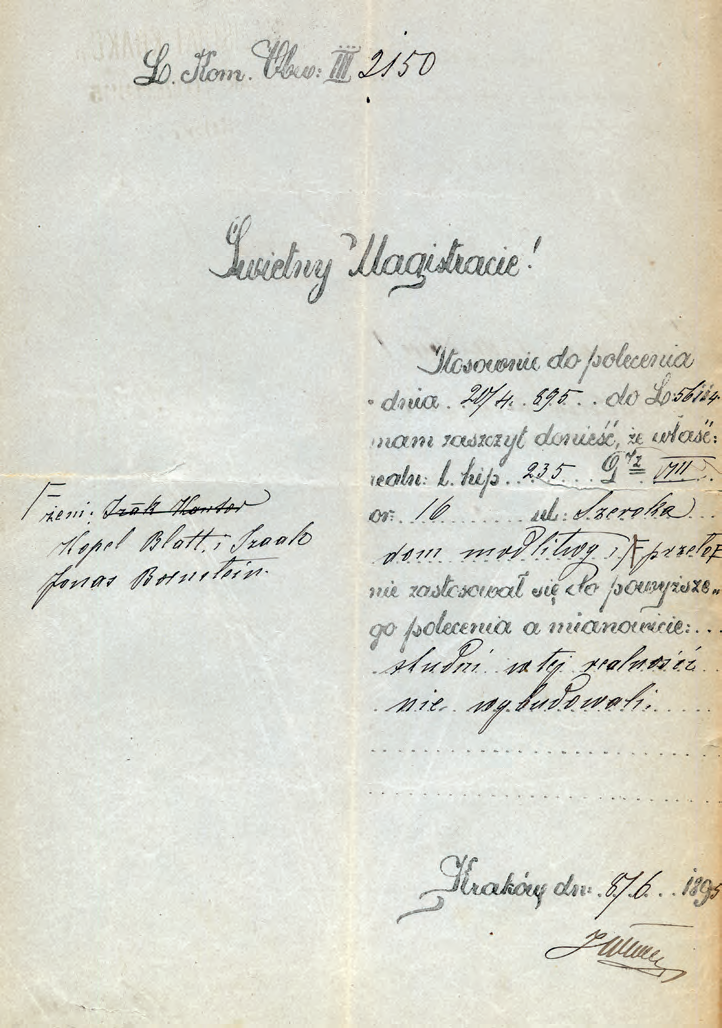 L. Kom. Obw: III 2150
Świetny Magistracie!
Stosownie do polecenia
dnia 20/4 895 do L 56124
mam zaszczyt donieść, że właśc:
realn: l. hip. 235 Gm Dz VIII
or: 16 ul: Szeroka
dom modlitwy i przeło
nie zastosował się do powyższe„
go polecenia a mianowicie:
studni w tej realności
nie wybudowali.
żeni: Izák Kantor
Kopel Blatt i Izaak
Jonas Bornstein.
Kraków dn: 8/6 1895